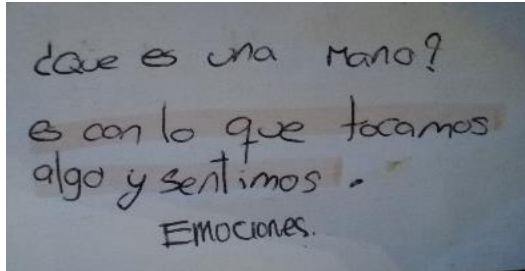 ¿Que es una mano?
es con lo que tocamos
algo y sentimos.
Emociones.